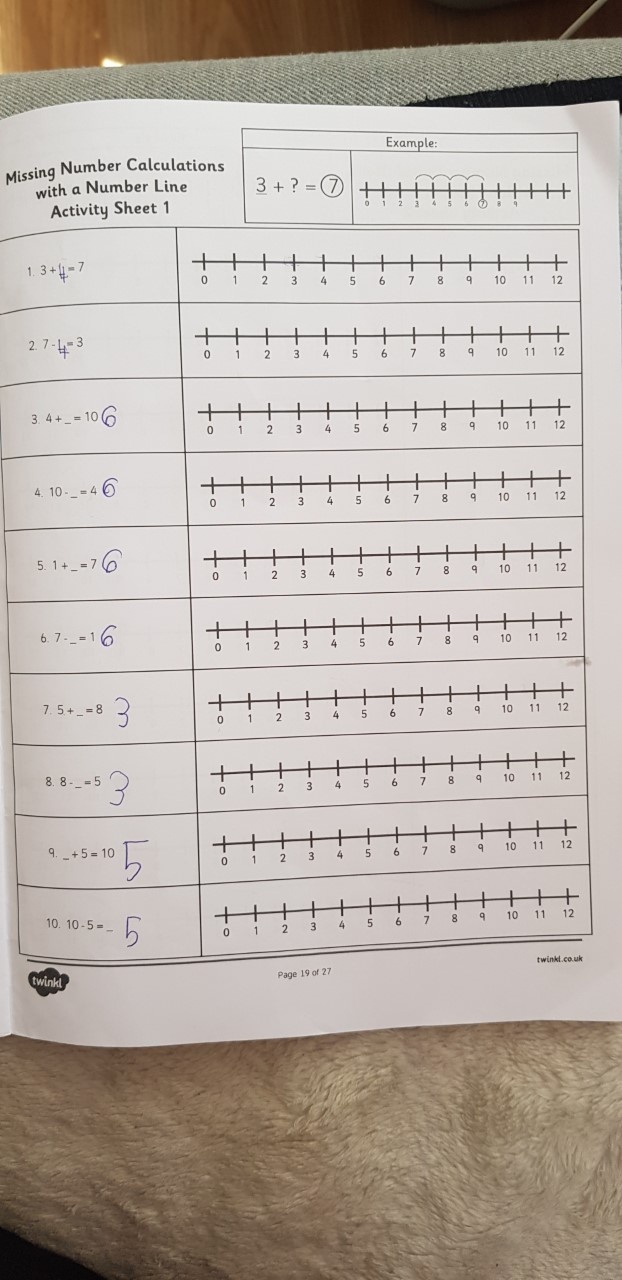 Missing Number Calculations
with a Number Line
Activity Sheet 1
Example:
3 + ? = 7
0 1 2 3 4 5 6 7 8 9
1. 3 + 4 = 7
0 1 2 3 4 5 6 7 8 9 10 11 12
2. 7 - 4 = 3
0 1 2 3 4 5 6 7 8 9 10 11 12
3. 4 + _ = 10 6
0 1 2 3 4 5 6 7 8 9 10 11 12
4. 10 - _ = 4 6
0 1 2 3 4 5 6 7 8 9 10 11 12
5. 1 + _ = 7 6
0 1 2 3 4 5 6 7 8 9 10 11 12
6. 7 - _ = 1 6
0 1 2 3 4 5 6 7 8 9 10 11 12
7. 5 + _ = 8 3
0 1 2 3 4 5 6 7 8 9 10 11 12
8. 8 - _ = 5 3
0 1 2 3 4 5 6 7 8 9 10 11 12
9. _ + 5 = 10 5
0 1 2 3 4 5 6 7 8 9 10 11 12
10. 10 - 5 = _ 5
0 1 2 3 4 5 6 7 8 9 10 11 12
twinkl
Page 19 of 27
twinkl.co.uk